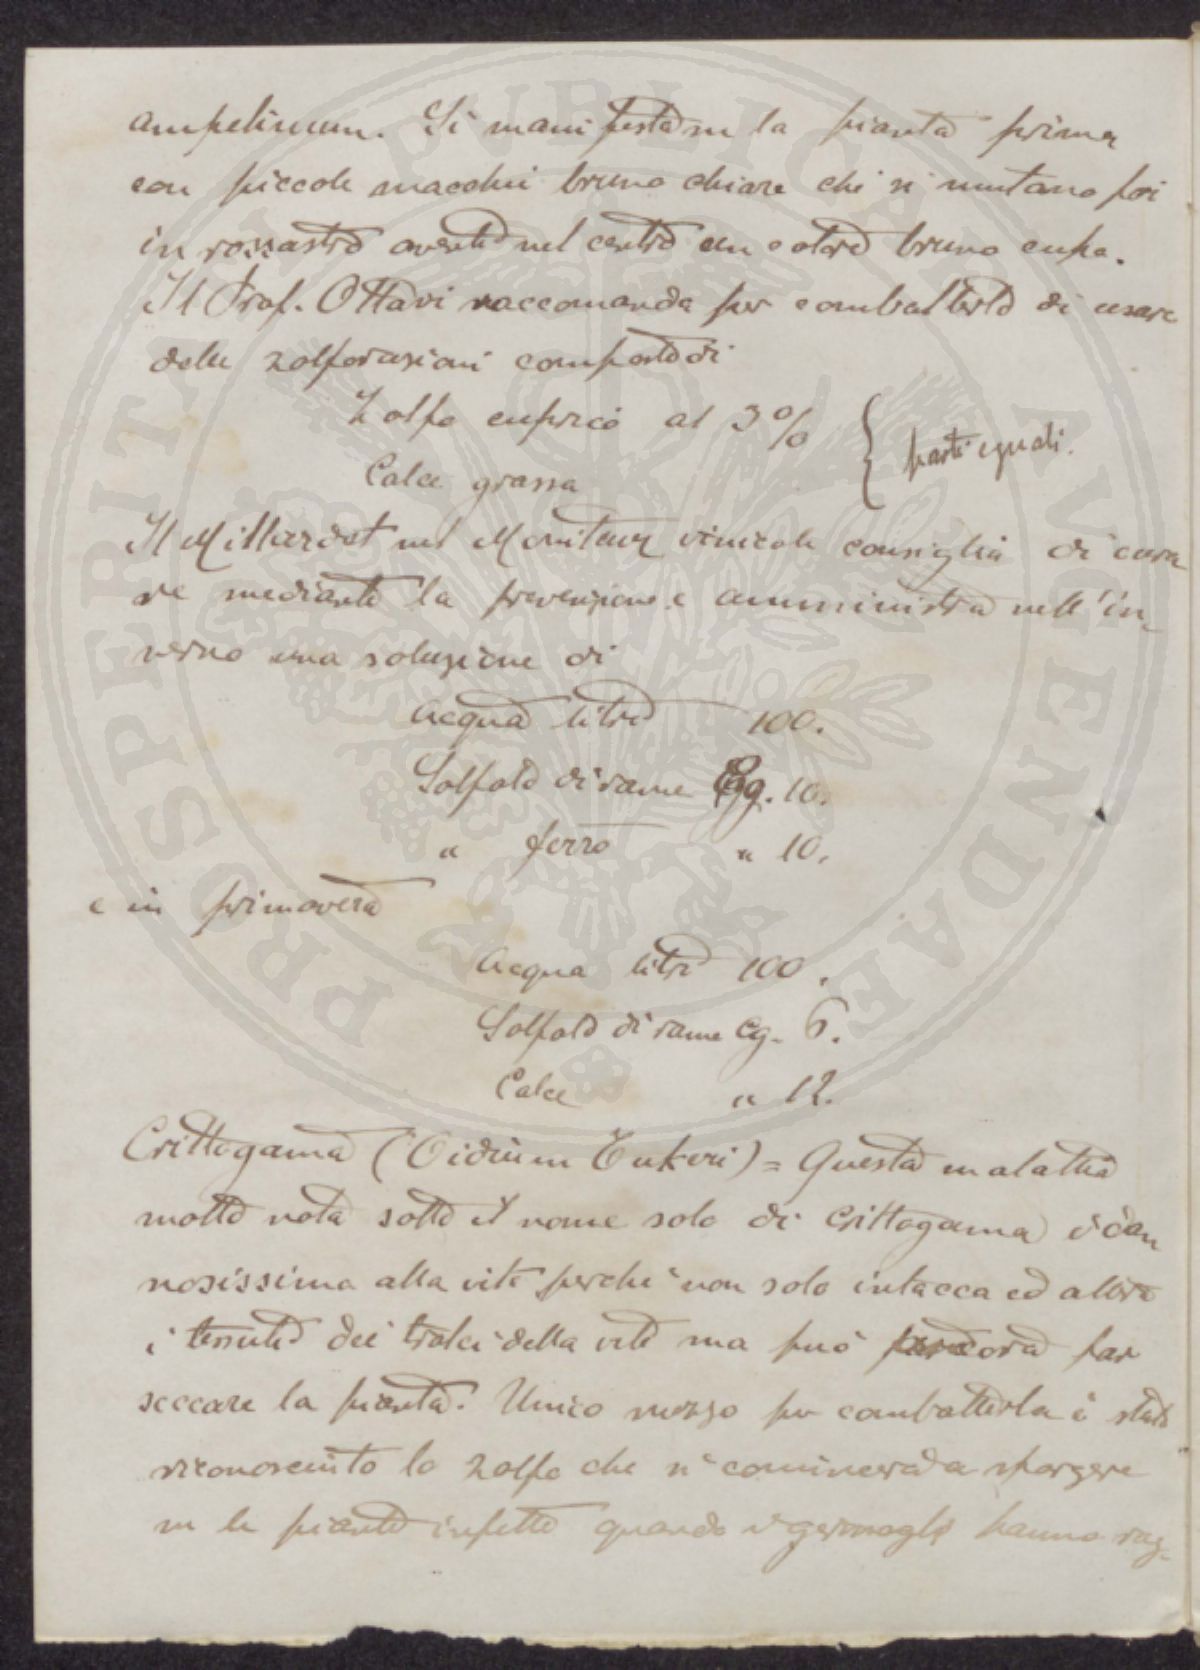 ampelinum. Si manifesta su la pianta prima
con piccole macchie bruno chiare che si mutano poi
in rossastro avente nel centro un colore bruno cupo.
Il Prof. Ottavi raccomanda per combatterlo di usare
delle zolforazioni composte di
Zolfo cuprico al 3% } parti eguali.
Calce grassa
Il Millardet nel Moniteur vinicole consiglia di cura
re mediante la prevenzione e amministra nell'in-
verno una soluzione di
Acqua litri 100.
Solfato di rame Cg. 10.
" ferro " 10.
e in primavera
Acqua litri 100.
Solfato di rame Cg. 6.
Calce " 12.
Crittogama (Oidium Tukeri) = Questa malattia
molto nota sotto il nome solo di Crittogama è dan
nosissima alla vite perchè non solo intacca ed altera
i tessuti dei tralci della vite ma può ancora far
seccare la pianta. Unico mezzo per combatterla è stato
riconosciuto lo zolfo che si comincerà a spargere
su le piante infette quando i germogli hanno rag-
PROSPERITATI PVBLICAE AVGENDAE